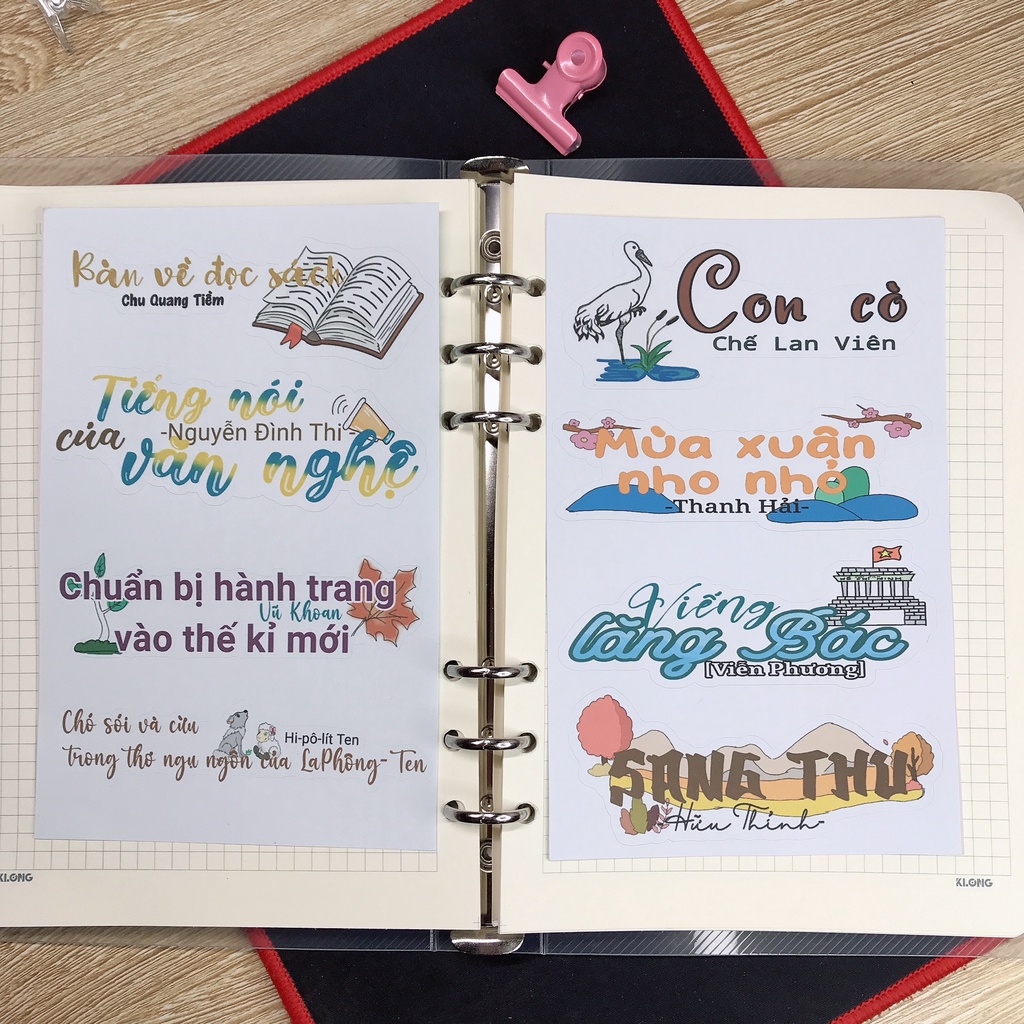 Bàn về đọc sách
Chu Quang Tiềm
Tiếng nói
của -Nguyễn Đình Thi
văn nghệ
Chuẩn bị hành trang
Vũ Khoan
vào thế kỉ mới
Chó sói và cừu
Hi-pô-lít Ten
trong thơ ngụ ngôn của LaPhông-Ten
KLONG
Con cò
Chế Lan Viên
Mùa xuân
nho nhỏ
-Thanh Hải-
HỒ CHÍ MINH
Viếng
lăng Bác
[Viễn Phương]
SANG THU
-Hữu Thỉnh-
KLONG